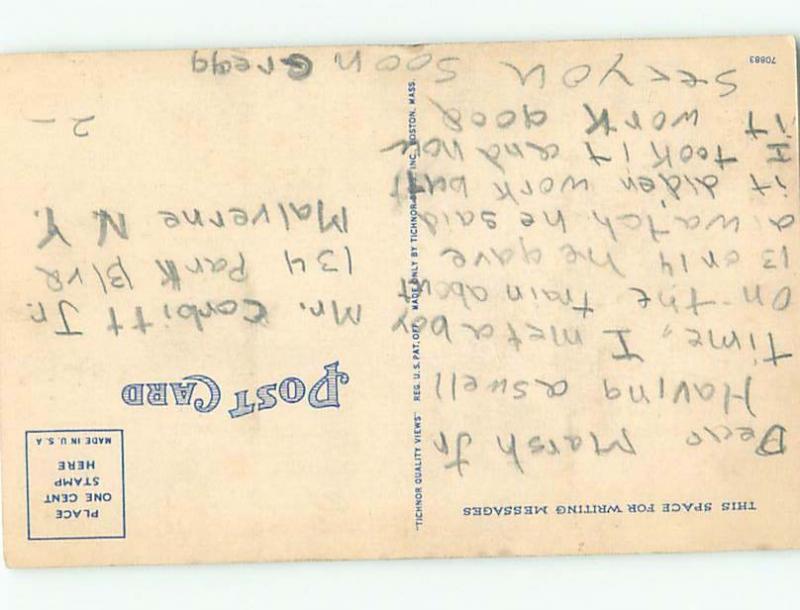 THIS SPACE FOR WRITING MESSAGES
Dear Marsh Jr
Having aswell
time, I met a boy
on the train about
13 or 14 he gave
a watch he said
it diden work but
I took it and now
it work good
see you soon Gregg
70883
"TICHNOR QUALITY VIEWS" REG. U. S. PAT. OFF. MADE ONLY BY TICHNOR BROS. INC., BOSTON, MASS.
POST CARD
PLACE
ONE CENT
STAMP
HERE
MADE IN U. S. A
Mr. Corbitt Jr.
134 Park Blvd
Malverne N.Y.
2-